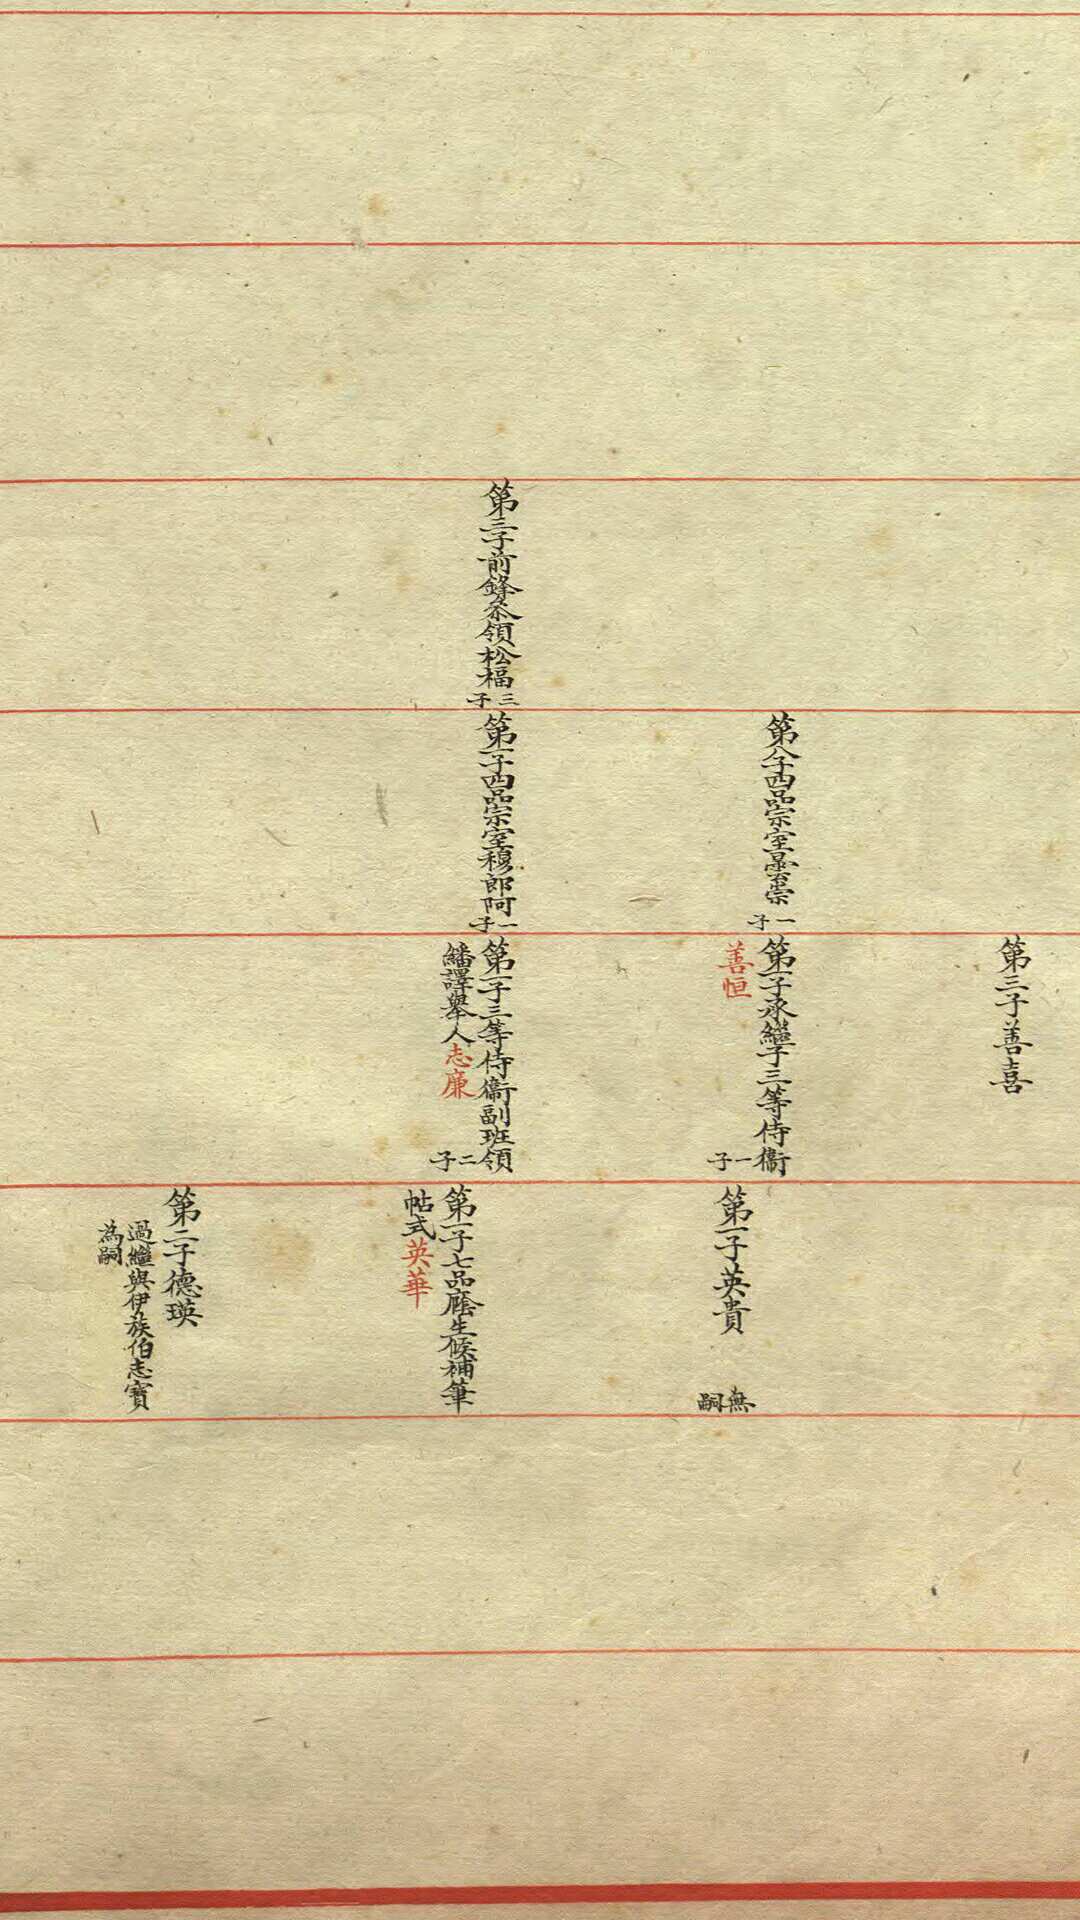 第三子善喜
第八子四品宗室墨雲崇
一子
第一子承繼子三等侍衞
善恒
一子
第一子英貴
無嗣
第三子前鋒叅領松福
三子
第一子四品宗室穆郎阿
一子
第一子三等侍衞副班領
繙譯舉人志廉
二子
第一子七品廕生候補筆
帖式英華
第二子德瑛
過繼與伊族伯志寶
為嗣